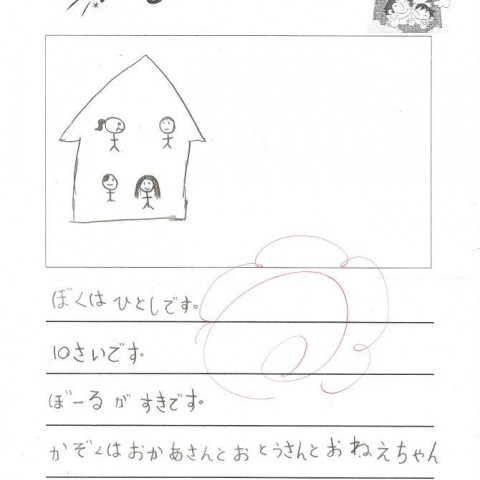 ぼくは ひとしです。
10さいです。
ぼーる が すきです。
かぞくは おかあさんと おとうさんと おねえちゃん